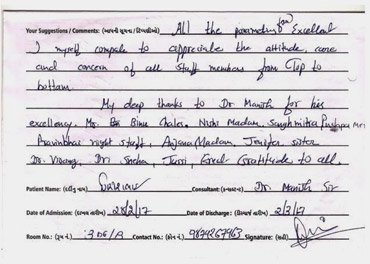 Your Suggestions / Comments: (આપની સૂચના / ટિપ્પણીઓ) All the parameters are Excellent
I myself compels to appreciate the attitude, care
and concern of all staff members from (Top to
bottom.
My deep thanks to Dr Manish for his
excellency. Mr. Binu Chako, Nishi Madam, Sanghmitra Mr.
Pravinbhai night staff, Anjana Madam, Jenifer sister
Dr. Dr. Sneha, Great Gratitude to all.
Patient Name: (દર્દીનું નામ) Consultant: (કન્સલ્ટન્ટ) Dr. Manish Sir
Date of Admission: (દાખલ તારીખ) 28/2/17 Date of Discharge: (ડિસ્ચાર્જ તારીખ) 2/3/17
Room No.: (રૂમ નં.) Contact No.: (ફોન નં.) 9879267963 Signature: (સહી)